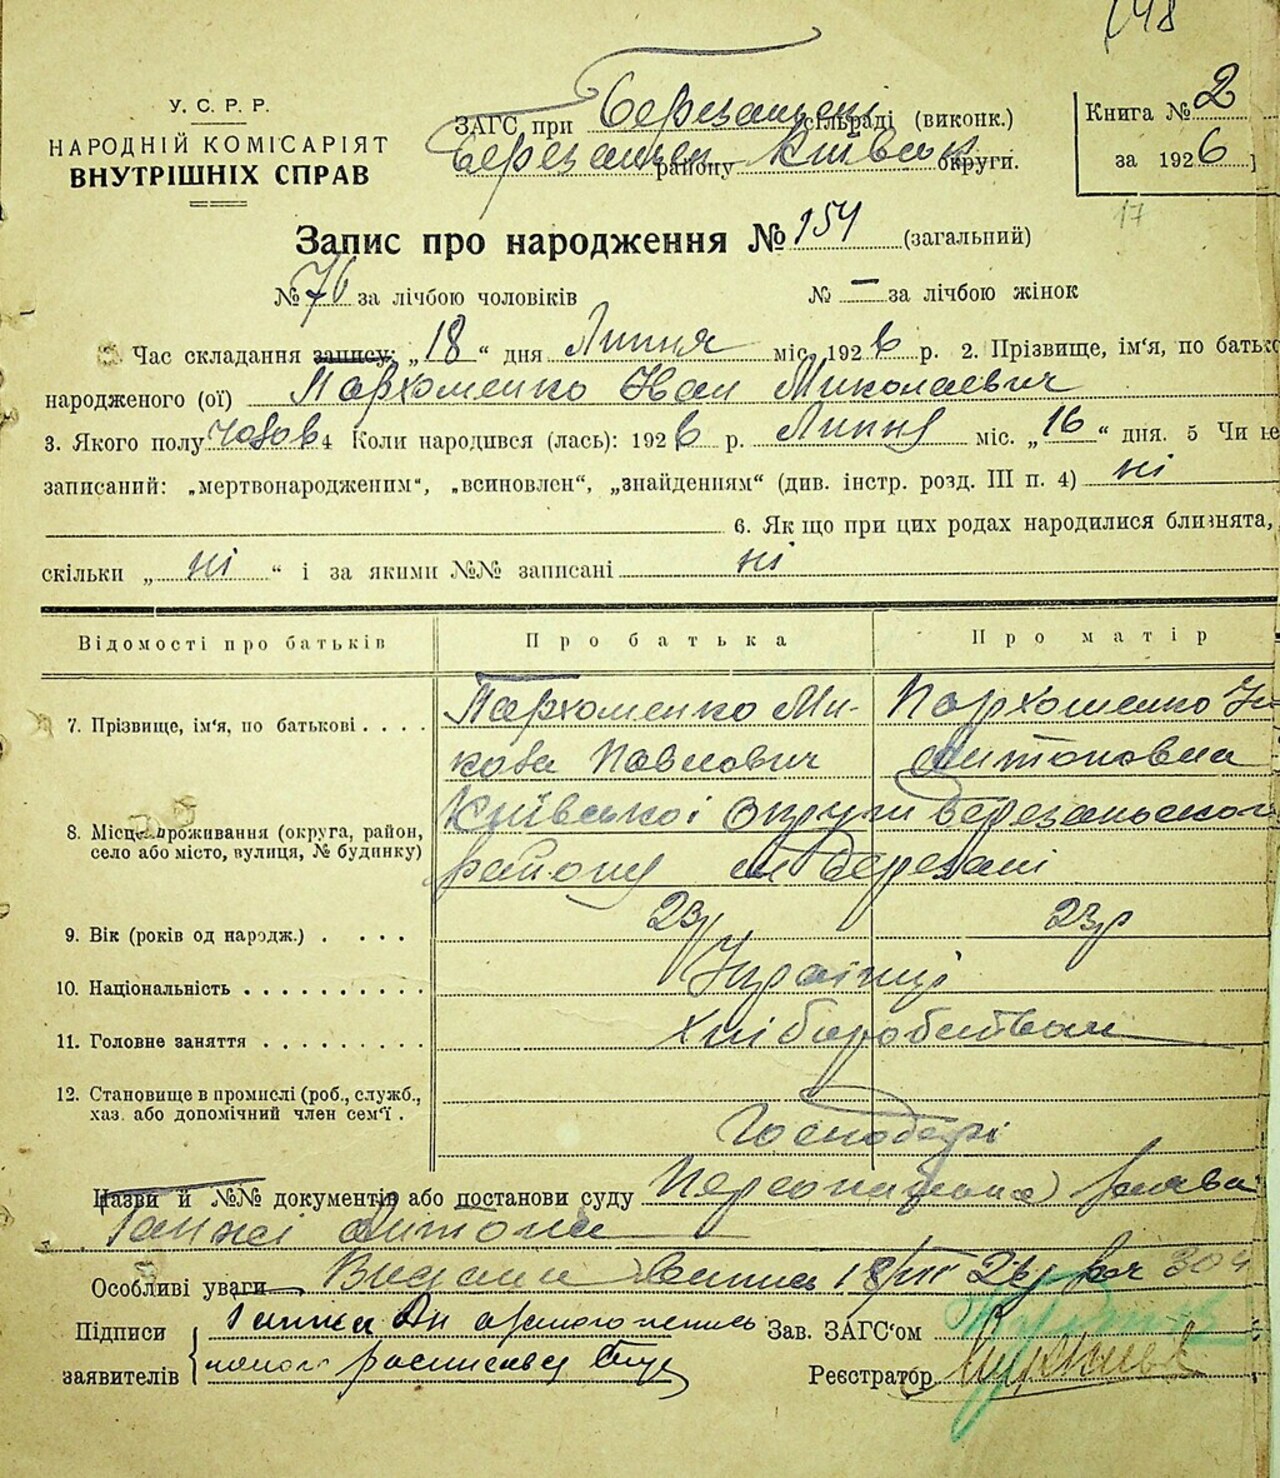 148
У. С. Р. Р.
НАРОДНІЙ КОМІСАРІЯТ
ВНУТРІШНІХ СПРАВ
ЗАГС при Березанській сільраді (виконк.)
Березанськ району Київськ округи.
Книга № 2
за 1926
17
Запис про народження № 154 (загальний)
№ 76 за лічбою чоловіків № — за лічбою жінок
Час складання запису: „18“ дня Липня міс. 1926 р. 2. Прізвище, ім‘я, по батько
народженого (ої) Пархоменко Иван Миколаевич
3. Якого полу Чолов 4 Коли народився (лась): 1926 р. Липня міс. „16“ дня. 5 Чи не
записаний: „мертвонародженим“, „всиновлен“, „знайденням“ (див. інстр. розд. III п. 4) ні
6. Як що при цих родах народилися близнята,
скільки „ ні “ і за якими №№ записані ні
Відомості про батьків Про батька Про матір
7. Прізвище, ім‘я, по батькові . . . . Пархоменко Ми- Пархоменко
кола Павлович Антоновна
8. Місце проживання (округа, район, Київської Округи Березанського
село або місто, вулиця, № будинку) району Березані
9. Вік (років од народж.) . . . . 23р 23р
10. Національність . . . . . . . . . . Українці
11. Головне заняття . . . . . . . . . Хліборобством
12. Становище в промислі (роб., служб.,
хаз. або допомічний член сем‘ї . Господарі
Назви й №№ документів або постанови суду Персональна заява
Антона
Особливі уваги Видано Выпись 18/VII 26р за № 304
Підписи
заявителів
Зав. ЗАГС‘ом
Реєстратор